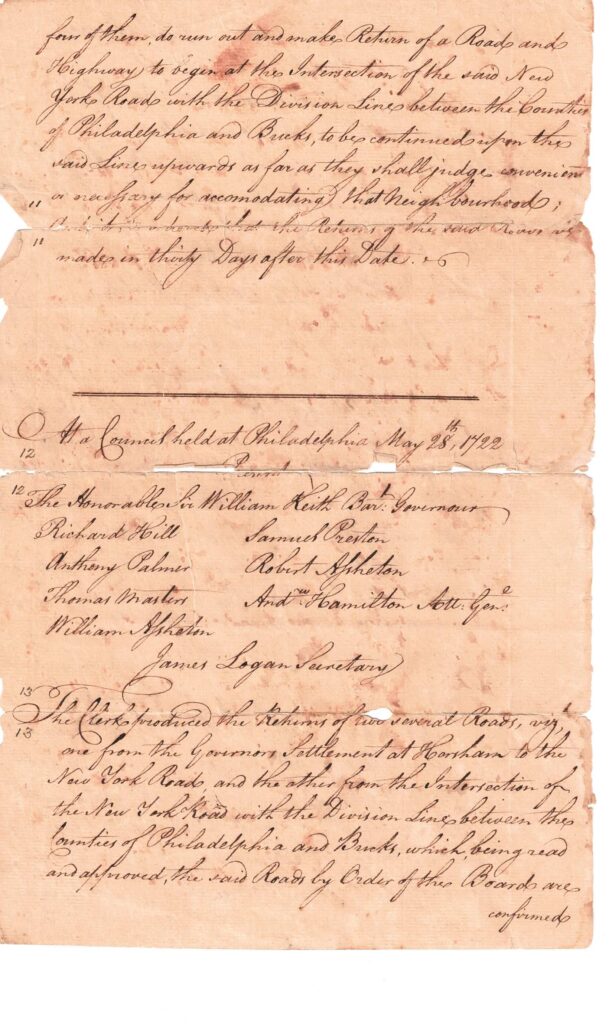 four of them, do run out and make Return of a Road and
Highway to begin at the Intersection of the said New
York Road with the Division Line between the Counties
of Philadelphia and Bucks, to be continued upon the
said Line upwards as far as they shall judge convenient
or nessessary for accomodating that Neighbourhood;
"
that the Returns of the said
"
made in thirty Days after this Date.
At a Council held at Philadelphia May 28th, 1722
12
Present
12
The Honorable Sir William Keith Bart. Governour
Richard Hill Samuel Preston
Anthony Palmer Robert Assheton
Thomas Masters Andrew Hamilton Att: Gene:
William Assheton
James Logan Secretary
13
The Clerk produced the Returns of two several Roads, viz
13
one from the Governors Settlement at Horsham to the
New York Road, and the other from the Intersection of
the New York Road with the Division Line between the
Counties of Philadelphia and Bucks, which being read
and approved, the said Roads by Order of the Board are
confirmed